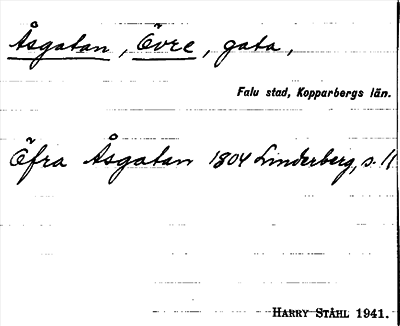 Åsgatan, Övre, gata,
Falu stad, Kopparbergs län.
Öfra Åsgatan 1804 Linderberg, s. 11
HARRY STÅHL 1941.